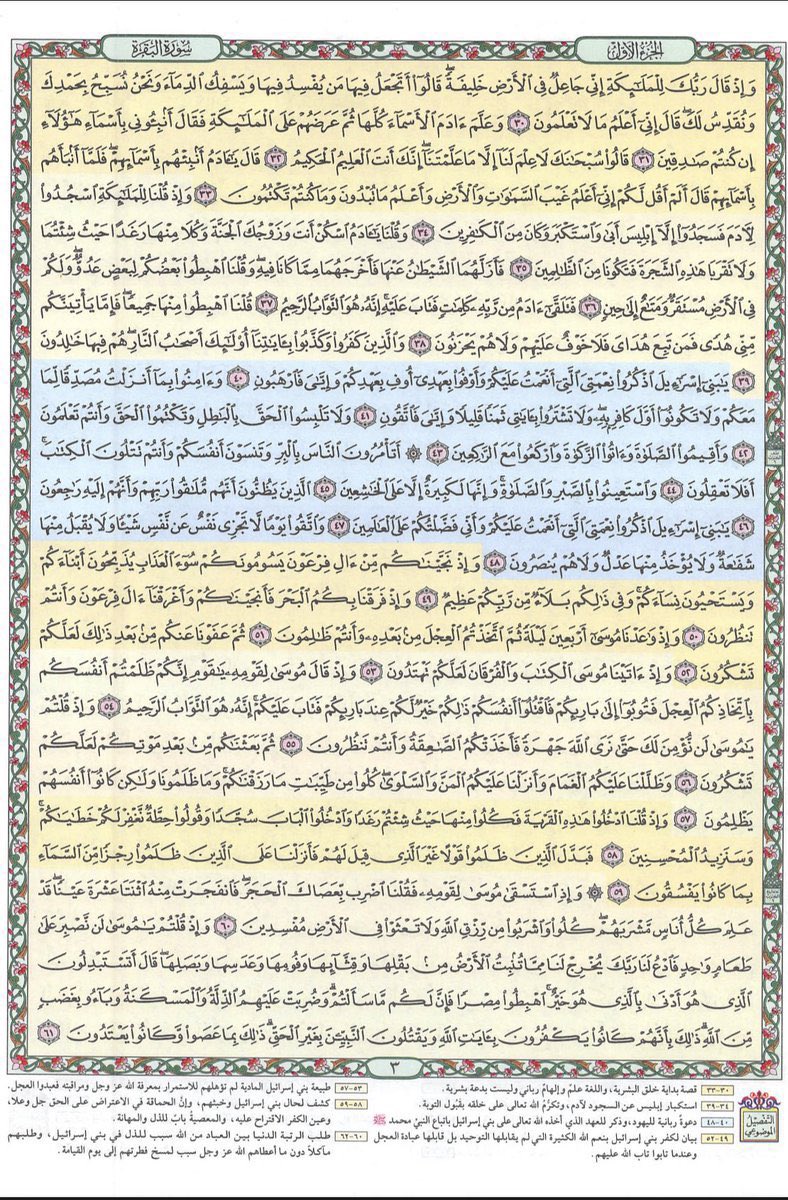 الجزء الأول
سورة البقرة
وَإِذْ قَالَ رَبُّكَ لِلْمَلَٰٓئِكَةِ إِنِّي جَاعِلٌ فِي ٱلْأَرْضِ خَلِيفَةً ۖ قَالُوٓا۟ أَتَجْعَلُ فِيهَا مَن يُفْسِدُ فِيهَا وَيَسْفِكُ ٱلدِّمَآءَ وَنَحْنُ نُسَبِّحُ بِحَمْدِكَ
وَنُقَدِّسُ لَكَ ۖ قَالَ إِنِّيٓ أَعْلَمُ مَا لَا تَعْلَمُونَ ٣٠ وَعَلَّمَ ءَادَمَ ٱلْأَسْمَآءَ كُلَّهَا ثُمَّ عَرَضَهُمْ عَلَى ٱلْمَلَٰٓئِكَةِ فَقَالَ أَنۢبِـُٔونِي بِأَسْمَآءِ هَٰٓؤُلَآءِ
إِن كُنتُمْ صَٰدِقِينَ ٣١ قَالُوا۟ سُبْحَٰنَكَ لَا عِلْمَ لَنَآ إِلَّا مَا عَلَّمْتَنَآ ۖ إِنَّكَ أَنتَ ٱلْعَلِيمُ ٱلْحَكِيمُ ٣٢ قَالَ يَٰٓـَٔادَمُ أَنۢبِئْهُم بِأَسْمَآئِهِمْ ۖ فَلَمَّآ أَنۢبَأَهُم
بِأَسْمَآئِهِمْ قَالَ أَلَمْ أَقُل لَّكُمْ إِنِّيٓ أَعْلَمُ غَيْبَ ٱلسَّمَٰوَٰتِ وَٱلْأَرْضِ وَأَعْلَمُ مَا تُبْدُونَ وَمَا كُنتُمْ تَكْتُمُونَ ٣٣ وَإِذْ قُلْنَا لِلْمَلَٰٓئِكَةِ ٱسْجُدُوا۟
لِـَٔادَمَ فَسَجَدُوٓا۟ إِلَّآ إِبْلِيسَ أَبَىٰ وَٱسْتَكْبَرَ وَكَانَ مِنَ ٱلْكَٰفِرِينَ ٣٤ وَقُلْنَا يَٰٓـَٔادَمُ ٱسْكُنْ أَنتَ وَزَوْجُكَ ٱلْجَنَّةَ وَكُلَا مِنْهَا رَغَدًا حَيْثُ شِئْتُمَا
وَلَا تَقْرَبَا هَٰذِهِ ٱلشَّجَرَةَ فَتَكُونَا مِنَ ٱلظَّٰلِمِينَ ٣٥ فَأَزَلَّهُمَا ٱلشَّيْطَٰنُ عَنْهَا فَأَخْرَجَهُمَا مِمَّا كَانَا فِيهِ ۖ وَقُلْنَا ٱهْبِطُوا۟ بَعْضُكُمْ لِبَعْضٍ عَدُوٌّ ۖ وَلَكُمْ
فِي ٱلْأَرْضِ مُسْتَقَرٌّ وَمَتَٰعٌ إِلَىٰ حِينٍ ٣٦ فَتَلَقَّىٰٓ ءَادَمُ مِن رَّبِّهِۦ كَلِمَٰتٍ فَتَابَ عَلَيْهِ ۚ إِنَّهُۥ هُوَ ٱلتَّوَّابُ ٱلرَّحِيمُ ٣٧ قُلْنَا ٱهْبِطُوا۟ مِنْهَا جَمِيعًا ۖ فَإِمَّا يَأْتِيَنَّكُم
مِّنِّي هُدًى فَمَن تَبِعَ هُدَايَ فَلَا خَوْفٌ عَلَيْهِمْ وَلَا هُمْ يَحْزَنُونَ ٣٨ وَٱلَّذِينَ كَفَرُوا۟ وَكَذَّبُوا۟ بِـَٔايَٰتِنَآ أُو۟لَٰٓئِكَ أَصْحَٰبُ ٱلنَّارِ ۖ هُمْ فِيهَا خَٰلِدُونَ
٣٩ يَٰبَنِيٓ إِسْرَٰٓءِيلَ ٱذْكُرُوا۟ نِعْمَتِيَ ٱلَّتِيٓ أَنْعَمْتُ عَلَيْكُمْ وَأَوْفُوا۟ بِعَهْدِيٓ أُوفِ بِعَهْدِكُمْ وَإِيَّٰيَ فَٱرْهَبُونِ ٤٠ وَءَامِنُوا۟ بِمَآ أَنزَلْتُ مُصَدِّقًا لِّمَا
مَعَكُمْ وَلَا تَكُونُوٓا۟ أَوَّلَ كَافِرٍۭ بِهِۦ ۖ وَلَا تَشْتَرُوا۟ بِـَٔايَٰتِي ثَمَنًا قَلِيلًا وَإِيَّٰيَ فَٱتَّقُونِ ٤١ وَلَا تَلْبِسُوا۟ ٱلْحَقَّ بِٱلْبَٰطِلِ وَتَكْتُمُوا۟ ٱلْحَقَّ وَأَنتُمْ تَعْلَمُونَ
٤٢ وَأَقِيمُوا۟ ٱلصَّلَوٰةَ وَءَاتُوا۟ ٱلزَّكَوٰةَ وَٱرْكَعُوا۟ مَعَ ٱلرَّٰكِعِينَ ٤٣ ۞ أَتَأْمُرُونَ ٱلنَّاسَ بِٱلْبِرِّ وَتَنسَوْنَ أَنفُسَكُمْ وَأَنتُمْ تَتْلُونَ ٱلْكِتَٰبَ ۚ
أَفَلَا تَعْقِلُونَ ٤٤ وَٱسْتَعِينُوا۟ بِٱلصَّبْرِ وَٱلصَّلَوٰةِ ۚ وَإِنَّهَا لَكَبِيرَةٌ إِلَّا عَلَى ٱلْخَٰشِعِينَ ٤٥ ٱلَّذِينَ يَظُنُّونَ أَنَّهُم مُّلَٰقُوا۟ رَبِّهِمْ وَأَنَّهُمْ إِلَيْهِ رَٰجِعُونَ
٤٦ يَٰبَنِيٓ إِسْرَٰٓءِيلَ ٱذْكُرُوا۟ نِعْمَتِيَ ٱلَّتِيٓ أَنْعَمْتُ عَلَيْكُمْ وَأَنِّي فَضَّلْتُكُمْ عَلَى ٱلْعَٰلَمِينَ ٤٧ وَٱتَّقُوا۟ يَوْمًا لَّا تَجْزِي نَفْسٌ عَن نَّفْسٍ شَيْـًٔا وَلَا يُقْبَلُ مِنْهَا
شَفَٰعَةٌ وَلَا يُؤْخَذُ مِنْهَا عَدْلٌ وَلَا هُمْ يُنصَرُونَ ٤٨ وَإِذْ نَجَّيْنَٰكُم مِّنْ ءَالِ فِرْعَوْنَ يَسُومُونَكُمْ سُوٓءَ ٱلْعَذَابِ يُذَبِّحُونَ أَبْنَآءَكُمْ
وَيَسْتَحْيُونَ نِسَآءَكُمْ ۚ وَفِي ذَٰلِكُم بَلَآءٌ مِّن رَّبِّكُمْ عَظِيمٌ ٤٩ وَإِذْ فَرَقْنَا بِكُمُ ٱلْبَحْرَ فَأَنجَيْنَٰكُمْ وَأَغْرَقْنَآ ءَالَ فِرْعَوْنَ وَأَنتُمْ
تَنظُرُونَ ٥٠ وَإِذْ وَٰعَدْنَا مُوسَىٰٓ أَرْبَعِينَ لَيْلَةً ثُمَّ ٱتَّخَذْتُمُ ٱلْعِجْلَ مِنۢ بَعْدِهِۦ وَأَنتُمْ ظَٰلِمُونَ ٥١ ثُمَّ عَفَوْنَا عَنكُم مِّنۢ بَعْدِ ذَٰلِكَ لَعَلَّكُمْ
تَشْكُرُونَ ٥٢ وَإِذْ ءَاتَيْنَا مُوسَى ٱلْكِتَٰبَ وَٱلْفُرْقَانَ لَعَلَّكُمْ تَهْتَدُونَ ٥٣ وَإِذْ قَالَ مُوسَىٰ لِقَوْمِهِۦ يَٰقَوْمِ إِنَّكُمْ ظَلَمْتُمْ أَنفُسَكُم
بِٱتِّخَاذِكُمُ ٱلْعِجْلَ فَتُوبُوٓا۟ إِلَىٰ بَارِئِكُمْ فَٱقْتُلُوٓا۟ أَنفُسَكُمْ ذَٰلِكُمْ خَيْرٌ لَّكُمْ عِندَ بَارِئِكُمْ فَتَابَ عَلَيْكُمْ ۚ إِنَّهُۥ هُوَ ٱلتَّوَّابُ ٱلرَّحِيمُ ٥٤ وَإِذْ قُلْتُمْ
يَٰمُوسَىٰ لَن نُّؤْمِنَ لَكَ حَتَّىٰ نَرَى ٱللَّهَ جَهْرَةً فَأَخَذَتْكُمُ ٱلصَّٰعِقَةُ وَأَنتُمْ تَنظُرُونَ ٥٥ ثُمَّ بَعَثْنَٰكُم مِّنۢ بَعْدِ مَوْتِكُمْ لَعَلَّكُمْ
تَشْكُرُونَ ٥٦ وَظَلَّلْنَا عَلَيْكُمُ ٱلْغَمَامَ وَأَنزَلْنَا عَلَيْكُمُ ٱلْمَنَّ وَٱلسَّلْوَىٰ ۖ كُلُوا۟ مِن طَيِّبَٰتِ مَا رَزَقْنَٰكُمْ ۖ وَمَا ظَلَمُونَا وَلَٰكِن كَانُوٓا۟ أَنفُسَهُمْ
يَظْلِمُونَ ٥٧ وَإِذْ قُلْنَا ٱدْخُلُوا۟ هَٰذِهِ ٱلْقَرْيَةَ فَكُلُوا۟ مِنْهَا حَيْثُ شِئْتُمْ رَغَدًا وَٱدْخُلُوا۟ ٱلْبَابَ سُجَّدًا وَقُولُوا۟ حِطَّةٌ نَّغْفِرْ لَكُمْ خَطَٰيَٰكُمْ ۚ
وَسَنَزِيدُ ٱلْمُحْسِنِينَ ٥٨ فَبَدَّلَ ٱلَّذِينَ ظَلَمُوا۟ قَوْلًا غَيْرَ ٱلَّذِي قِيلَ لَهُمْ فَأَنزَلْنَا عَلَى ٱلَّذِينَ ظَلَمُوا۟ رِجْزًا مِّنَ ٱلسَّمَآءِ
بِمَا كَانُوا۟ يَفْسُقُونَ ٥٩ ۞ وَإِذِ ٱسْتَسْقَىٰ مُوسَىٰ لِقَوْمِهِۦ فَقُلْنَا ٱضْرِب بِّعَصَاكَ ٱلْحَجَرَ ۖ فَٱنفَجَرَتْ مِنْهُ ٱثْنَتَا عَشْرَةَ عَيْنًا ۖ قَدْ
عَلِمَ كُلُّ أُنَاسٍ مَّشْرَبَهُمْ ۖ كُلُوا۟ وَٱشْرَبُوا۟ مِن رِّزْقِ ٱللَّهِ وَلَا تَعْثَوْا۟ فِي ٱلْأَرْضِ مُفْسِدِينَ ٦٠ وَإِذْ قُلْتُمْ يَٰمُوسَىٰ لَن نَّصْبِرَ عَلَىٰ
طَعَامٍ وَٰحِدٍ فَٱدْعُ لَنَا رَبَّكَ يُخْرِجْ لَنَا مِمَّا تُنۢبِتُ ٱلْأَرْضُ مِنۢ بَقْلِهَا وَقِثَّآئِهَا وَفُومِهَا وَعَدَسِهَا وَبَصَلِهَا ۖ قَالَ أَتَسْتَبْدِلُونَ
ٱلَّذِي هُوَ أَدْنَىٰ بِٱلَّذِي هُوَ خَيْرٌ ۚ ٱهْبِطُوا۟ مِصْرًا فَإِنَّ لَكُم مَّا سَأَلْتُمْ ۗ وَضُرِبَتْ عَلَيْهِمُ ٱلذِّلَّةُ وَٱلْمَسْكَنَةُ وَبَآءُو بِغَضَبٍ
مِّنَ ٱللَّهِ ۗ ذَٰلِكَ بِأَنَّهُمْ كَانُوا۟ يَكْفُرُونَ بِـَٔايَٰتِ ٱللَّهِ وَيَقْتُلُونَ ٱلنَّبِيِّـۧنَ بِغَيْرِ ٱلْحَقِّ ۗ ذَٰلِكَ بِمَا عَصَوا۟ وَّكَانُوا۟ يَعْتَدُونَ ٦١
٣
التفصيل الموضوعي
٣٠-٣٣ قصة بداية خلق البشرية، واللغة علمٌ وإلهامٌ رباني وليست بدعة بشرية.
٣٤-٣٩ استكبار إبليس عن السجود لآدم، وتكرُّمُ الله تعالى على خلقه بقَبُول التوبة.
٤٠-٤٨ دعوةٌ ربانية لليهود، وذكر للعهد الذي أخذه الله تعالى على بني إسرائيل باتباع النبيِّ محمد ﷺ
٤٩-٥٢ بيان لكفر بني إسرائيل بنعم الله الكثيرة التي لم يقابلها التوحيد بل قابلها عبادة العجل
وعندما تابوا تاب الله عليهم.
٥٣-٥٧ طبيعة بني إسرائيل المادية لم تؤهلهم للاستمرار بمعرفة الله عز وجل ومراقبته فعبدوا العجل.
٥٨-٥٩ كشف لحال بني إسرائيل وخبثهم، وإنَّ الحماقة في الاعتراض على الحق جل وعلا،
وعين الكفر الاقتراح عليه، والمعصيةُ بابٌ للذل والمهانة.
٦٠-٦٢ طلب الرتبة الدنيا بين العباد من الله سبب للذل في بني إسرائيل، وطلبهم
مآكلاً دون ما أعطاهم الله عز وجل سبب لمسخ فطرتهم إلى يوم القيامة.